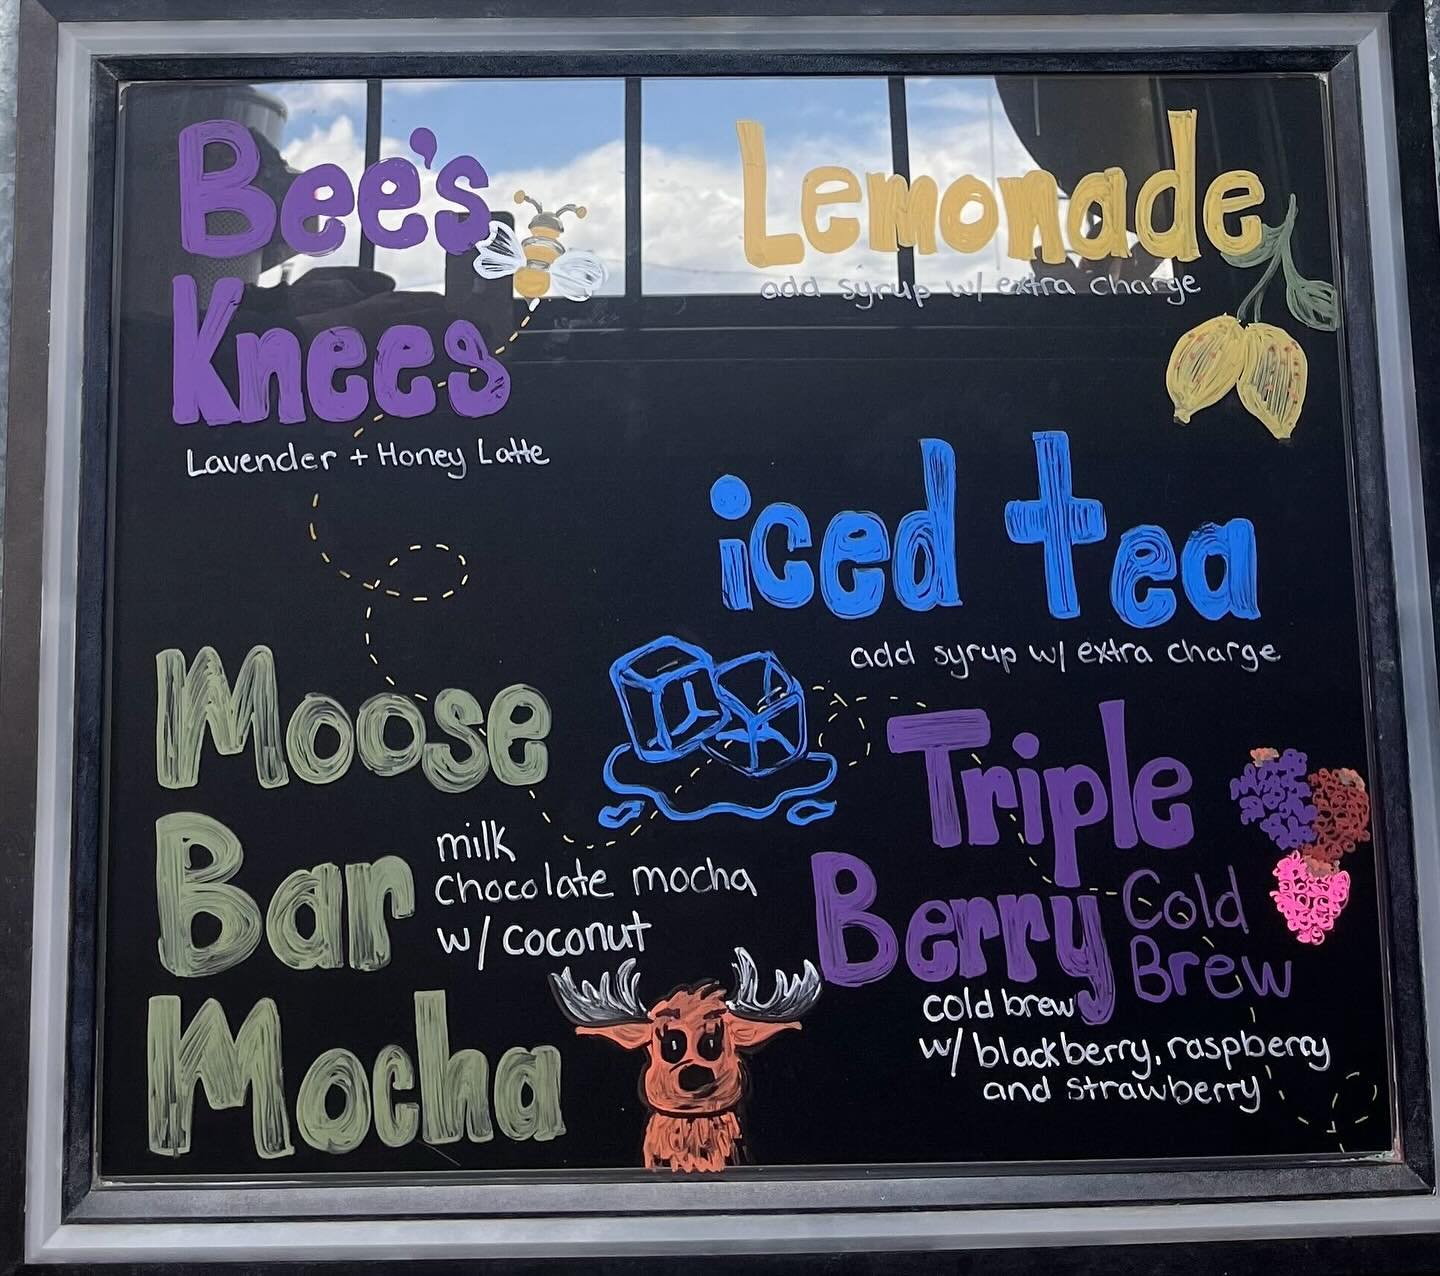 Bee's
Knees
Lavender + Honey Latte
Lemonade
add syrup w/ extra charge
iced tea
add syrup w/ extra charge
Moose
Bar
Mocha
milk
chocolate mocha
w/ coconut
Triple
Berry
Cold
Brew
cold brew
w/ blackberry, raspberry
and strawberry